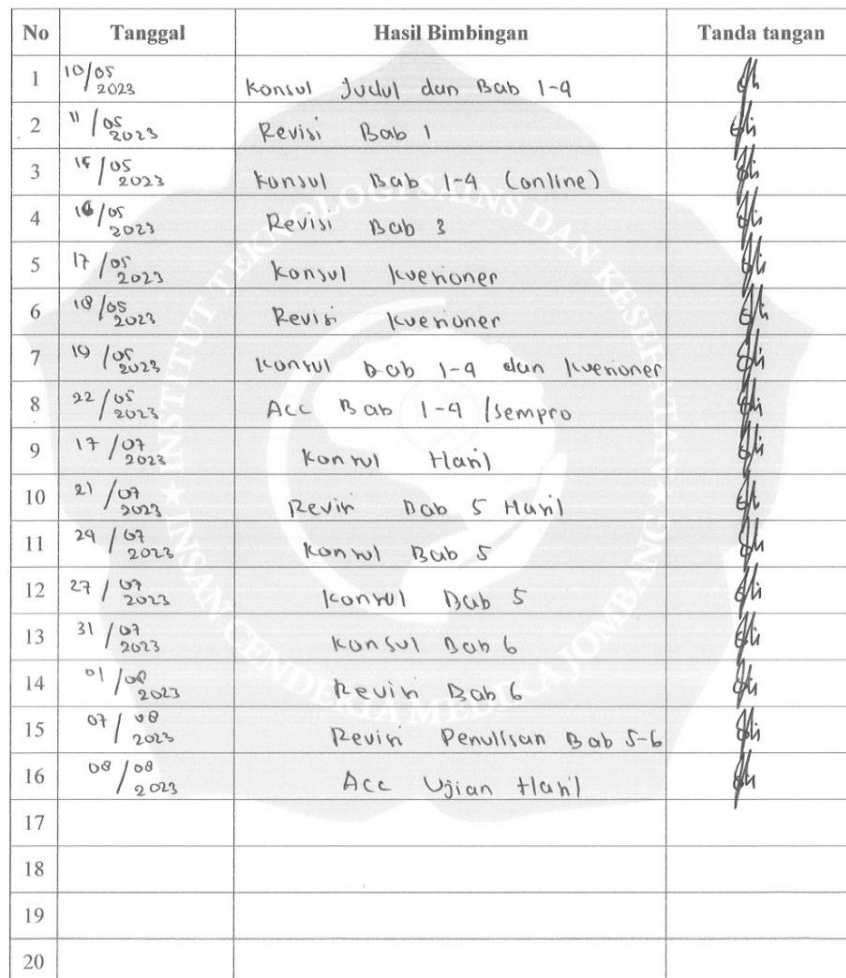 No Tanggal Hasil Bimbingan Tanda tangan
1 10/05 2023 Konsul Judul dan Bab 1-4
2 11/05 2023 Revisi Bab 1
3 15/05 2023 Konsul Bab 1-4 (online)
4 16/05 2023 Revisi Bab 3
5 17/05 2023 Konsul Kuesioner
6 18/05 2023 Revisi Kuesioner
7 19/05 2023 Konsul Bab 1-4 dan Kuesioner
8 22/05 2023 Acc Bab 1-4 /sempro
9 17/07 2023 Konsul Hasil
10 21/07 2023 Revisi Bab 5 Hasil
11 24/07 2023 Konsul Bab 5
12 27/07 2023 Konsul Bab 5
13 31/07 2023 Konsul Bab 6
14 01/08 2023 Revisi Bab 6
15 07/08 2023 Revisi Penulisan Bab 5-6
16 08/08 2023 Acc Ujian Hasil
17
18
19
20
INSTITUT TEKNOLOGI SAINS DAN KESEHATAN
INSAN CENDEKIA MEDIKA JOMBANG